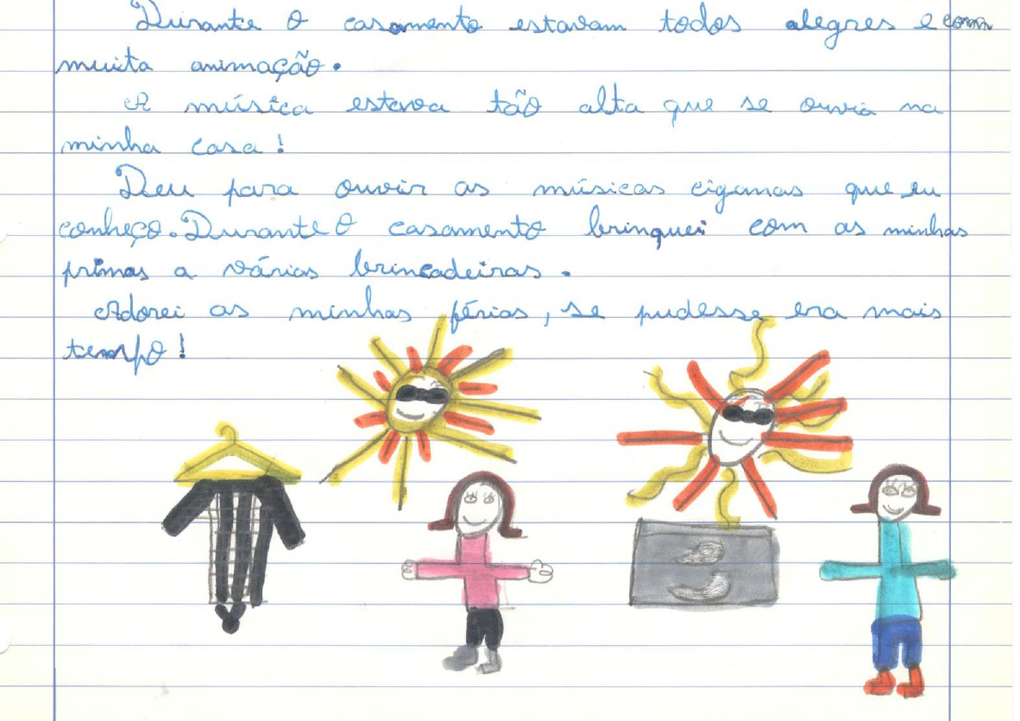 Durante o casamento estavam todos alegres e com
muita animação.
A música estava tão alta que se ouvia na
minha casa!
Deu para ouvir as músicas ciganas que eu
conheço. Durante o casamento brinquei com as minhas
primas a várias brincadeiras.
Adorei as minhas férias, se pudesse era mais
tempo!